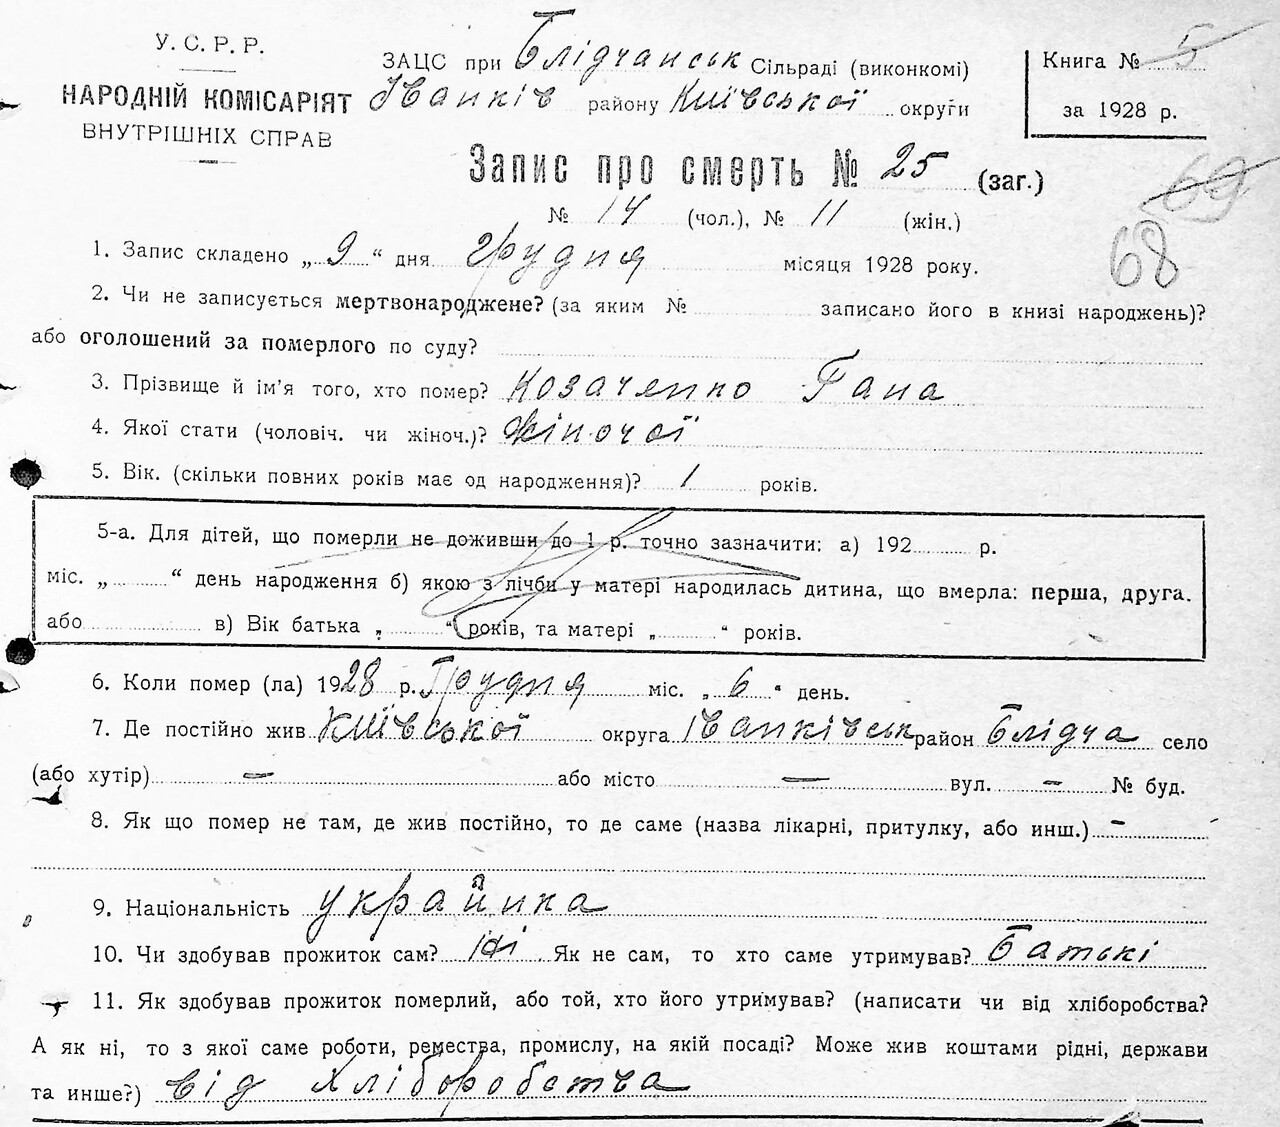 У. С. Р. Р.
НАРОДНІЙ КОМІСАРІЯТ
ВНУТРІШНІХ СПРАВ
ЗАЦС при Блідчанськ Сільраді (виконкомі)
Іванків району Київської округи
Книга № 5
за 1928 р.
Запис про смерть № 25 (заг.)
№ 14 (чол.), № 11 (жін.)
69
68
1. Запис складено „ 9 “ дня грудня місяця 1928 року.
2. Чи не записується мертвонароджене? (за яким № записано його в книзі народжень)?
або оголошений за померлого по суду?
3. Прізвище й ім'я того, хто помер? Козаченко Гана
4. Якої стати (чоловіч. чи жіноч.)? Жіночої
5. Вік. (скільки повних років має од народження)? 1 років.
5-а. Для дітей, що померли не доживши до 1 р. точно зазначити: а) 192 р.
міс. „ “ день народження б) якою з лічби у матері народилась дитина, що вмерла: перша, друга.
або в) Вік батька „ “ років, та матері „ “ років.
6. Коли помер (ла) 1928 р. Грудня міс. „ 6 “ день.
7. Де постійно жив Київської округа Іванківськ район Блідча село
(або хутір) — або місто — вул. — № буд.
8. Як що помер не там, де жив постійно, то де саме (назва лікарні, притулку, або инш.) —
9. Національність українка
10. Чи здобував прожиток сам? Ні Як не сам, то хто саме утримував? Батькі
11. Як здобував прожиток померлий, або той, хто його утримував? (написати чи від хліборобства?
А як ні, то з якої саме роботи, ремества, промислу, на якій посаді? Може жив коштами рідні, держави
та инше?) від хліборобства